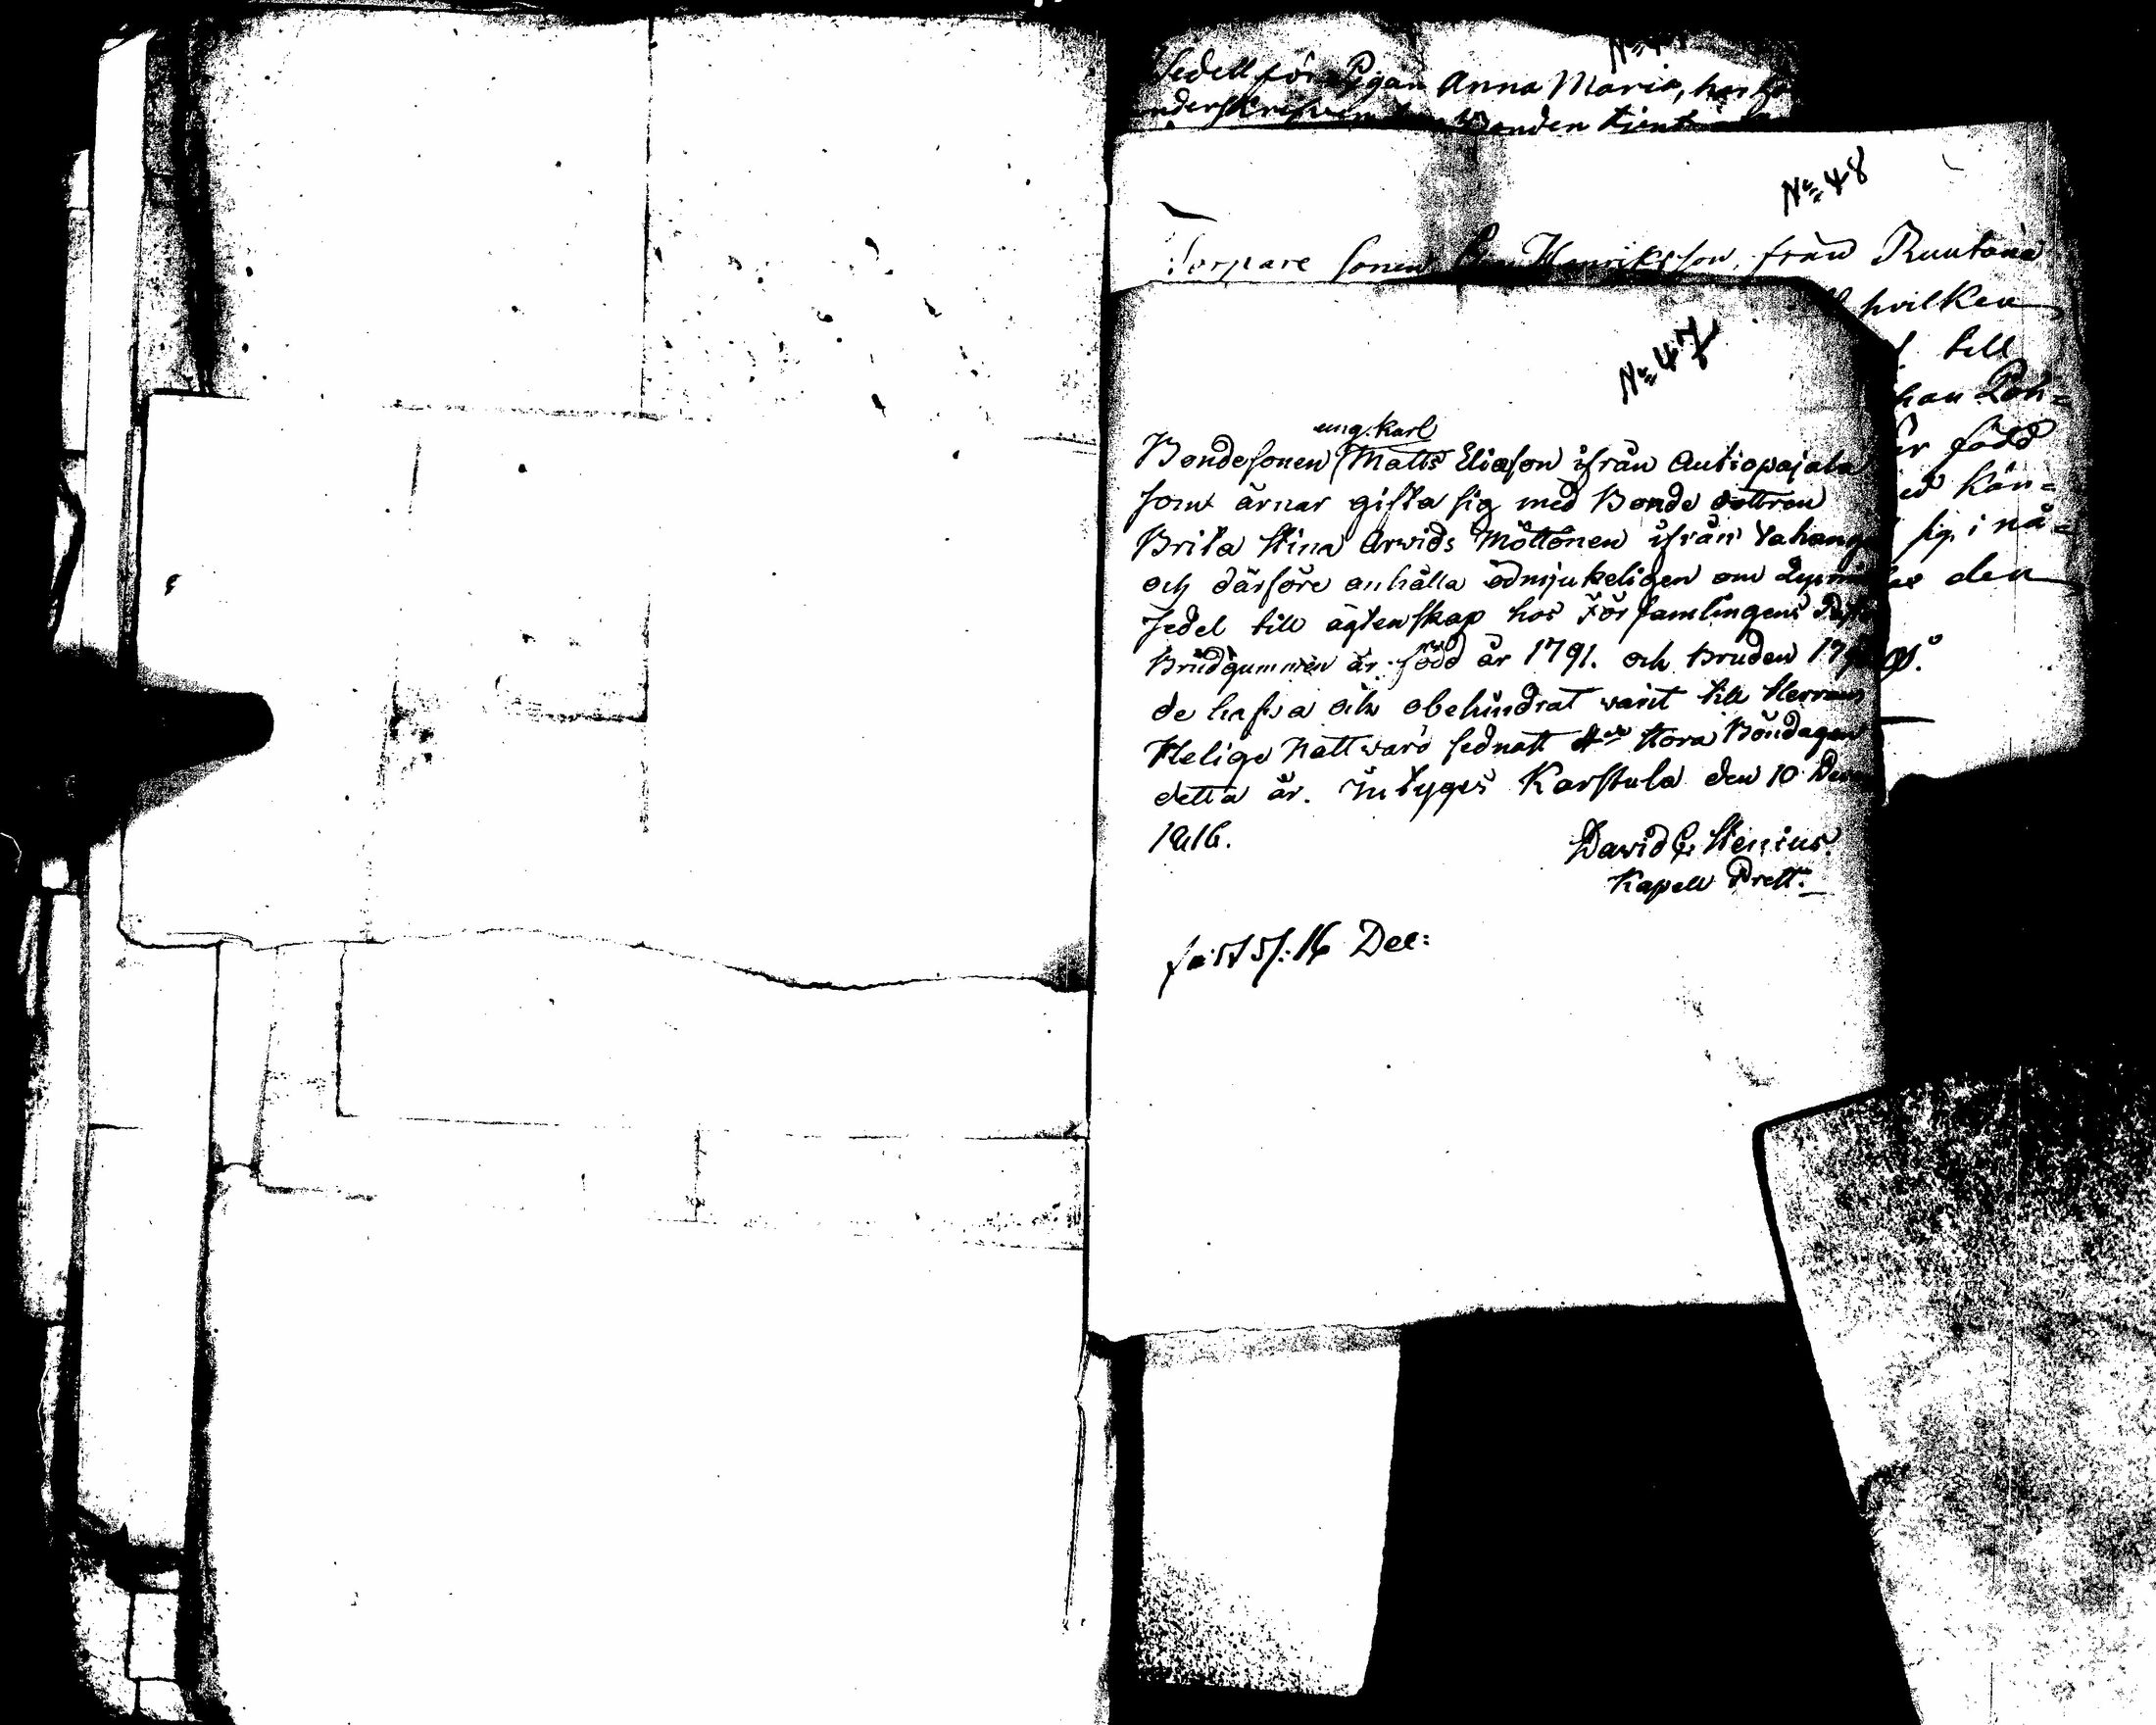 Sedell för Pigan Anna Maria, har
Bonden tjent
No 48
Torpare sonen Henriksson, från Ruutana
hvilken
till
han Pöh=
är född
kän=
sig i nå=
den
No 47
ung. karl
Bondesonen Matts Eliæson ifrån Autiopajala
som ärnar gifta sig med Bonde dottren
Brita Stina Arvids Möttönen ifrån Vahang
och därföre anhålla ödmjukeligen om Lysni
sedel till ägtenskap hos Församlingens Past
Brudgummen är född år 1791. och Bruden 17
de hafva ock obehindrat varit till Herrans
Helige Nattvard sednast Stora Böndagen
detta år. Intyges Karstula den 10 Dec
1816.
David G. Stenius.
Kapell Pred:
16 Dec: